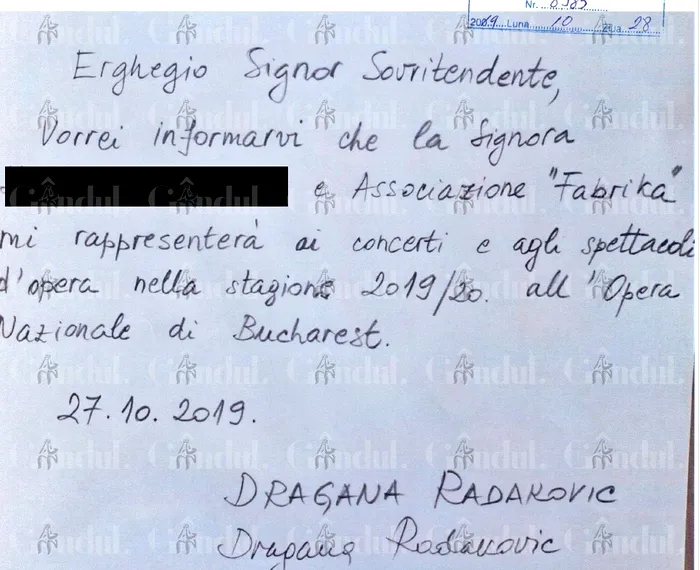 Nr.
2009 Luna 10 Ziua 28
Erghegio Signor Sovritendente,
Vorrei informarvi che la Signora
e Associazione "Fabrika"
mi rappresenterà ai concerti e agli spettacoli
d'opera nella stagione 2019/20. all'Opera
Nazionale di Bucharest.
27.10.2019.
DRAGANA RADAKOVIC
Dragana Radakovic
Gândul.